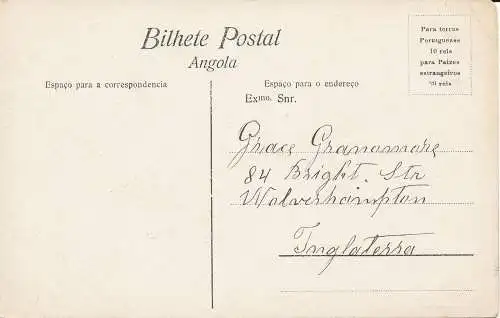 Bilhete Postal
Angola
Para terras
Portuguesas
10 reis
para Paizes
estrangeiros
20 reis
Espaço para a correspondencia
Espaço para o endereço
Exmo. Snr.
Grace Granomore
84 Bright. Str
Wolverhampton
Inglaterra